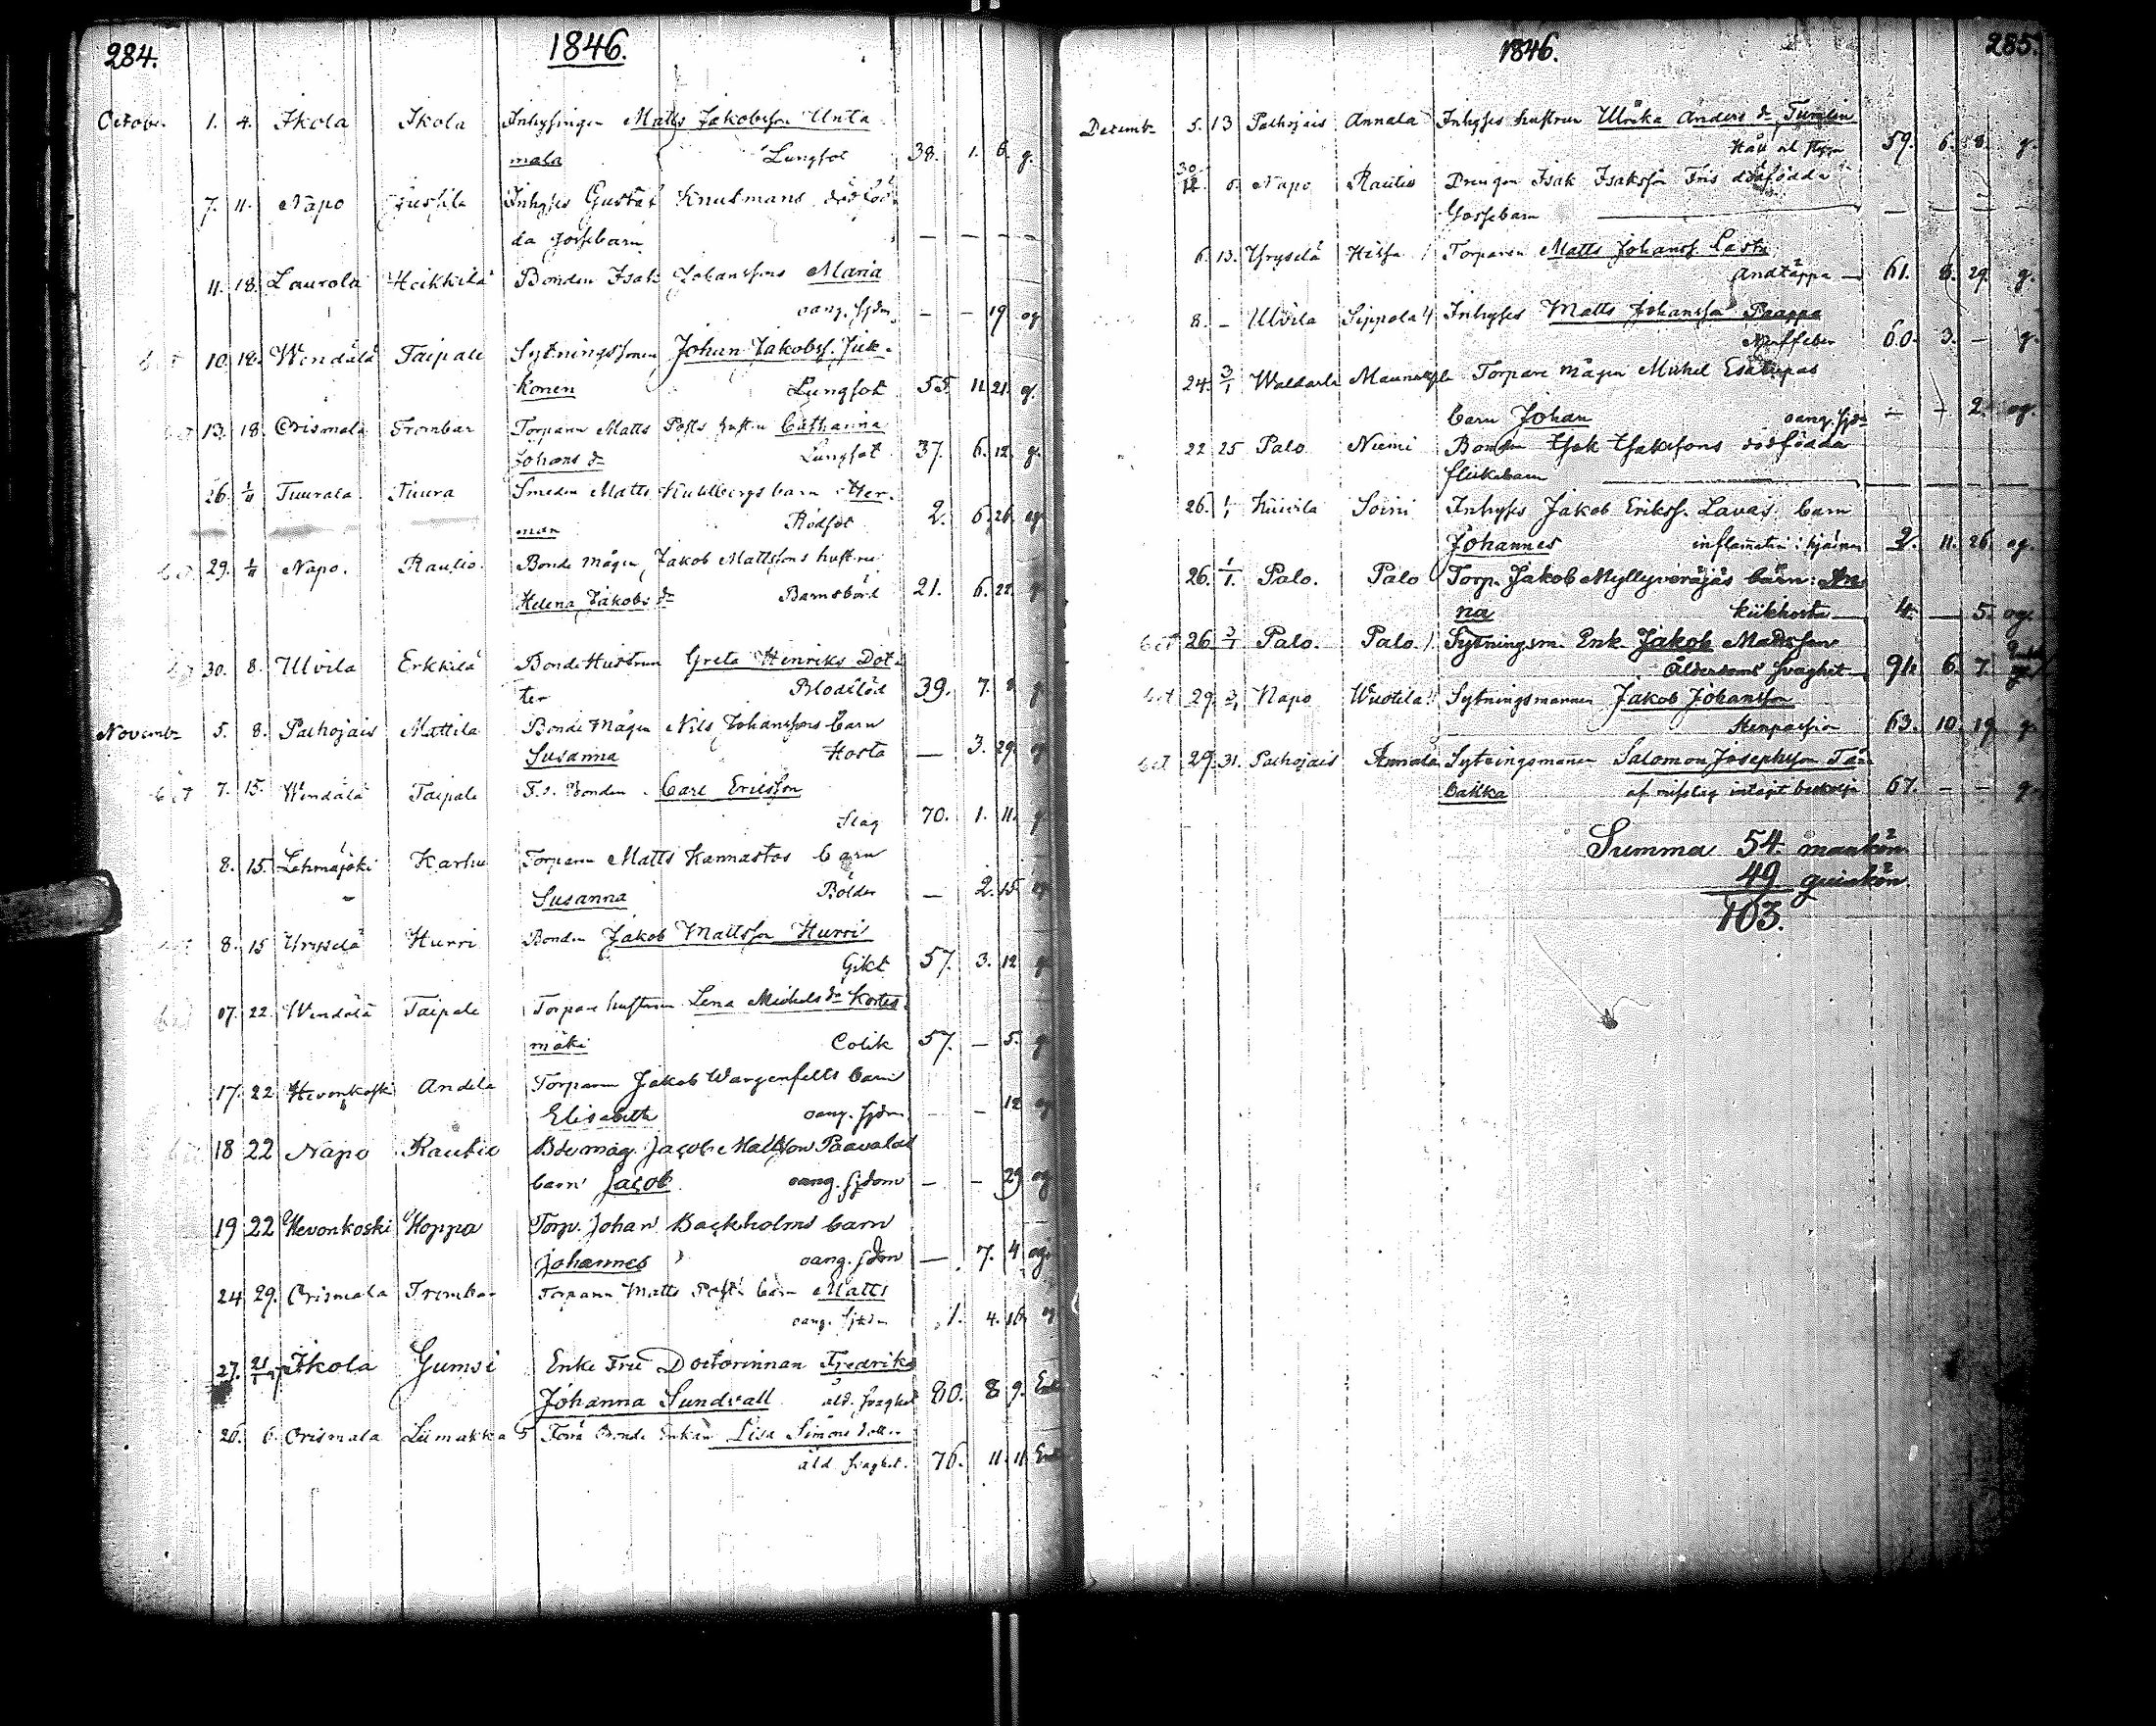 284.
1846.
October 1. 4. Ikola Ikola Inhysingen Matts Jakobsson Unta
mala Lungsot 38. 1. 6. g.
7. 11. Napo Inhyses Gustaf Knutmans dödföd
da gossebarn — — — —
11. 18. Laurola Heikkilä Bonden Isak Johanssons Maria
oang. sjdm — — 19 og
10. 18. Wendälä Taipale Sytningsmannen Johan Jakobss. Juk-
konen Lungsot 55. 11. 21. g.
13. 18. Orismala Trombar Torparen Matts Posts hustru Catharina
Johans dr Lungsot 37. 6. 12. g.
26. 1/11 Tuurala Tuura Smeden Matts Kuhlbergs barn Her-
man Rödsot 2. 6. 26. og
29. 1/11 Napo. Rautio. Bonde mågen Jakob Mattssons hustru
Helena Jakobs dr Barnsbörd 21. 6. 22. g
30. 8. Ulvila Erkkilä Bonde Hustrun Greta Henriks Dot-
ter Blodslöd 39. 7. g
Novembr 5. 8. Palhojais Mattila Bonde Mågen Nils Johanssons barn
Susanna Hosta — 3. 29. og
7. 15. Wendälä Taipale F.d. Bonden Carl Ericsson
Slag 70. 1. 11. g
8. 15. Lehmäjoki Karhu Torparen Matts Kannastos barn
Susanna Bölder — 2. 15. og
8. 15 Yrysselä Hurri Bonden Jakob Mattsson Hurri
Gikt 57. 3. 12 g
17. 22. Wendälä Taipale Torpare hustrun Lena Michels dr Kortes
mäki Colik 57. — 5. g
17. 22 Hevonkoski Andela Torparen Jakob Wargenfelts barn
Elisabeth oang. sjdm — — 12 og
18 22 Napo Rautio Bdemåg. Jacob Mattsson Paavalas
barn Jacob oang. sjdom — — 29 og
19 22 Hevonkoski Hoppa Torp. Johan Backholms barn
Johannes oang. sjdm — 7. 4 og
24 29. Orismala Trombar Torparen Matts Posts barn Matts
oang. sjdm 1. 4. 16. og
27. Ikola Gumsi Enke Fru Doctorinnan Fredrika
Johanna Sundvall åld. svaghet 80. 8 9. Enk
26. 6. Orismala Liimakka Förra Bonde Enkan Lisa Simonsdotter
åld svaghet. 76. 11. 11. Enk
1846.
285.
Decembr 5. 13 Palhojais Annala Inhyses hustrun Ulrika Anders dr Tumlin
Håll o. stygn 59. 6. 8. g.
30. 12. 6. Napo Rautio Drengen Isak Isaksson Fris dödfödda
Gossebarn — — — —
6. 13. Yrysselä Torparen Matts Johanss. Lasti
Andtäppa — 61. 8. 29. g.
8. – Ulvila Sippola Inhyses Matts Johansson Paappa
Nerffeber 60. 3. — g.
24. 3/1 Waldarla Maunuksela Torpare mågen Michel Esatupas
barn Johan oang. sjdm — — 2. og.
22 25 Palo. Niemi Bonden Isak Isakssons dödfödda
flickebarn — — — —
26. 1/1 Kuivila Soini Inhyses Jakob Erikss. Lavas barn
Johannes inflamation i hjärnan 2. 11. 26 og.
26. 1/1. Palo. Palo Torp. Jakob Myllyvörajäs barn: An
na kikhosta — 4. — 5. og.
26 3/1 Palo. Palo Sytningsm. Enk. Jakob Mattsson
Ålderdoms svaghet 91. 6. 7.
29. 3/1 Napo Wuotila Sytningsmannen Jakob Johansson
Stenpassion 63. 10. 19. g.
29. 31. Palhojais Annala Sytningsmannen Salomon Josephsson Tä
bakka af misstag intagit 67. — — g.
Summa 54. mankön
49 qvinkön.
103.